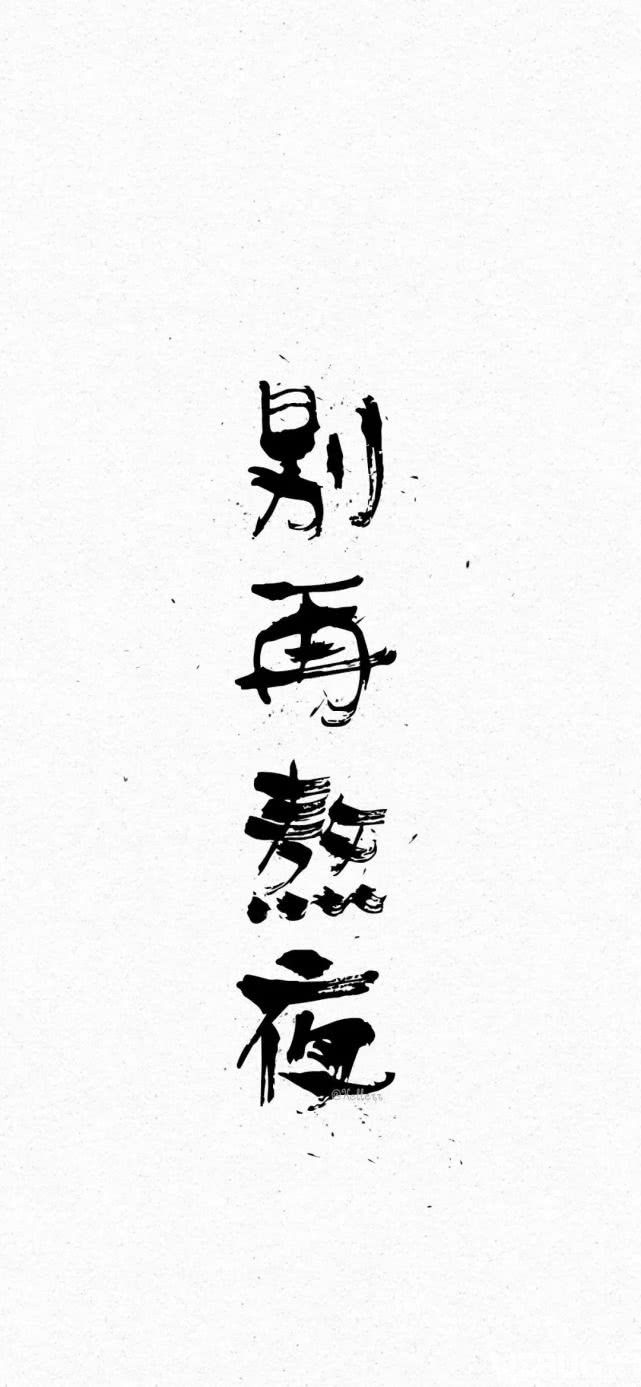 别再熬夜